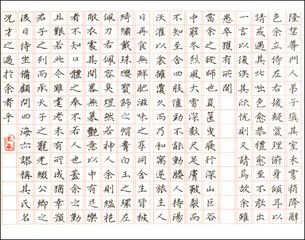 隆望尊門人弟子填其室未嘗稍降辭
色余立侍左右援疑質理俯身傾耳以
請或遇其叱咄色愈恭禮愈至不敢出
一言以復俟其欣悅則又請焉故余雖
愚卒獲有所聞
當余之從師也負篋曳屣行深山巨谷
中窮冬烈風大雪深數尺足膚皸裂而
不知至舍四肢僵勁不能動媵人持湯
沃灌以衾擁覆久而乃和寓逆旅主人
日再食無鮮肥滋味之享同舍生皆被
綺繡戴珠纓寶飾之帽白玉之余則縕袍
敝衣處其間略無慕艷意以中有足樂
者不知口體之奉不若人也蓋余之勤
且艱若此今雖耄老未有所成猶幸預
君子之列而承天子之寵光綴公卿之
後日侍坐備顧問四海亦謬稱其氏名
況才之過於余者乎